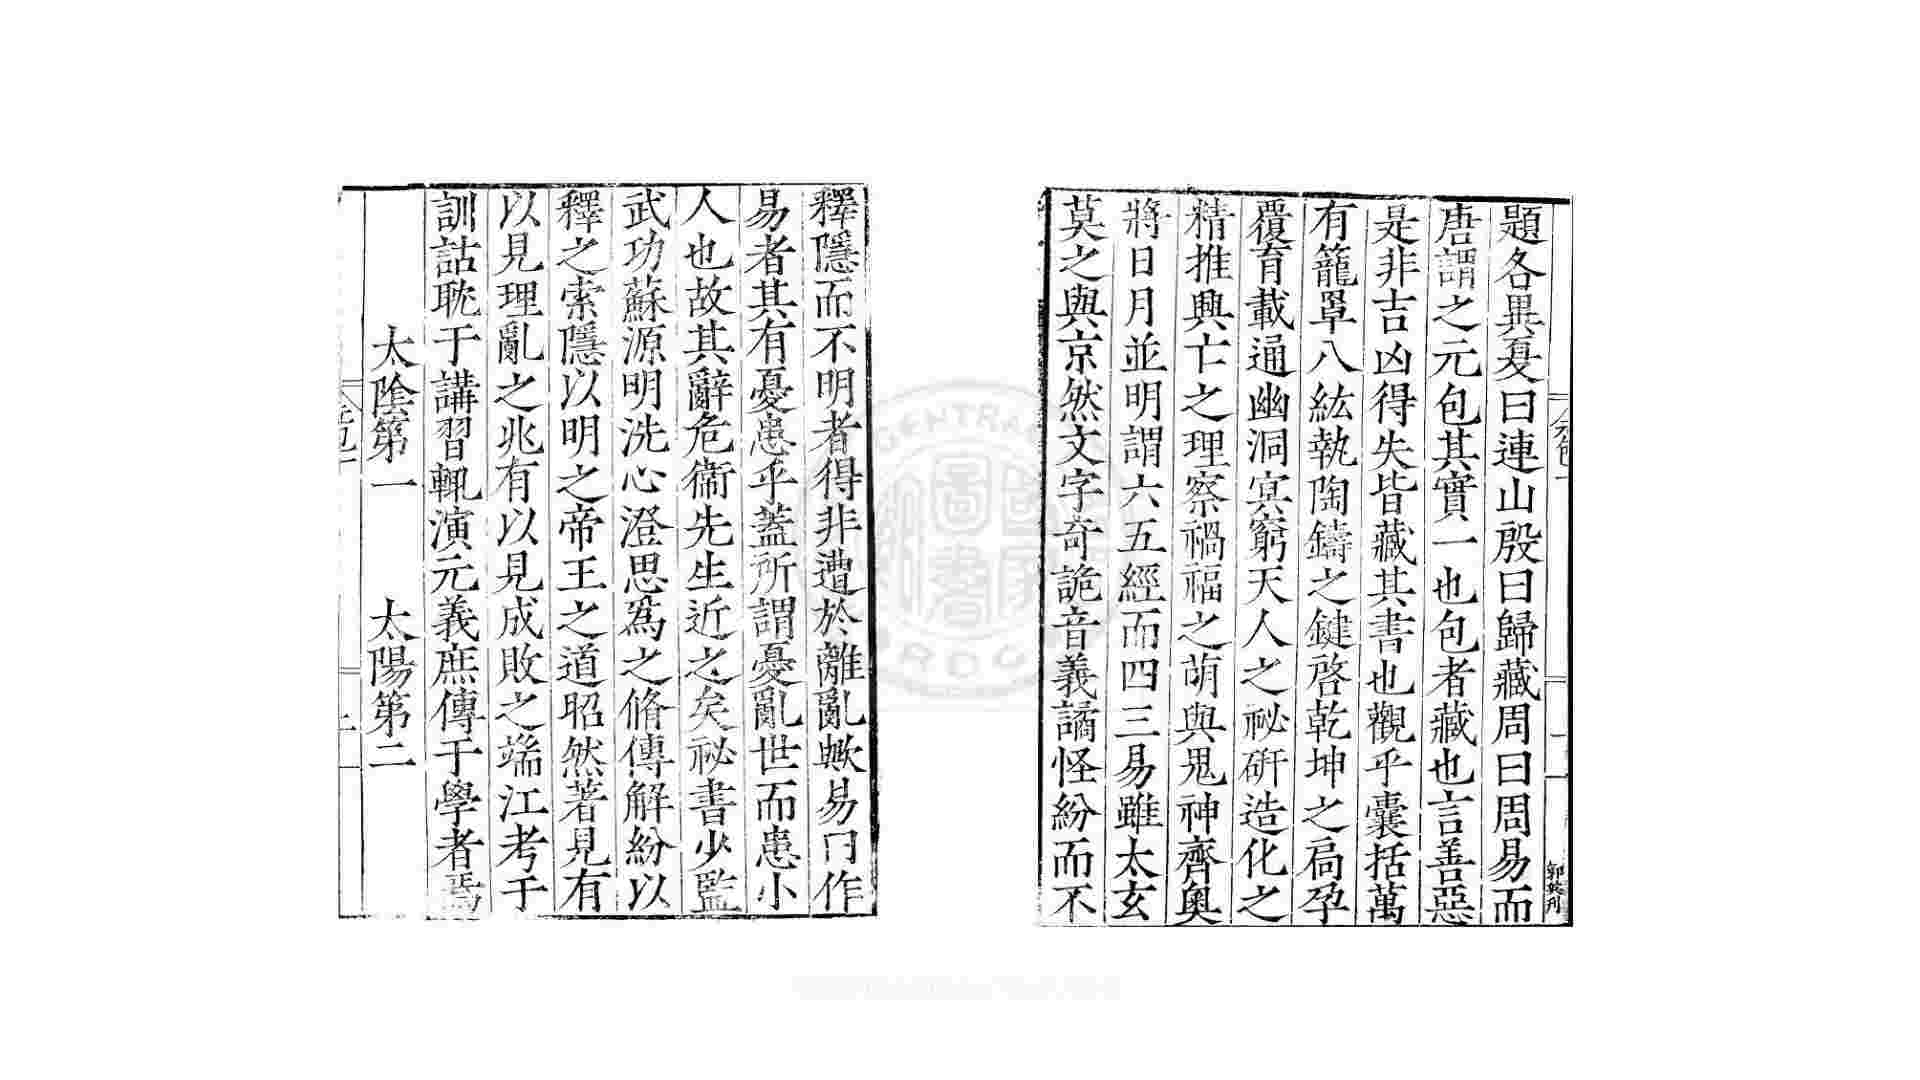 題各異夏曰連山殷曰歸藏周曰周易而
唐謂之元包其實一也包者藏也言善惡
是非吉凶得失皆藏其書也觀乎囊括萬
有籠罩八紘執陶鑄之鍵啓乾坤之扃孕
覆育載通幽洞冥窮天人之祕硏造化之
精推興亡之理察禍福之萌與鬼神齊奧
將日月並明謂六五經而四三易雖太玄
莫之與京然文字奇詭音義譎怪紛而不
釋隱而不明者得非遭於離亂歟易曰作
易者其有憂患乎蓋所謂憂亂世而患小
人也故其辭危衞先生近之矣祕書少監
武功蘇源明洗心澄思爲之脩傳解紛以
釋之索隱以明之帝王之道昭然著見有
以見理亂之兆有以見成敗之端江考于
訓詁耽于講習輒演元義庶傳于學者焉
太陰第一 太陽第二